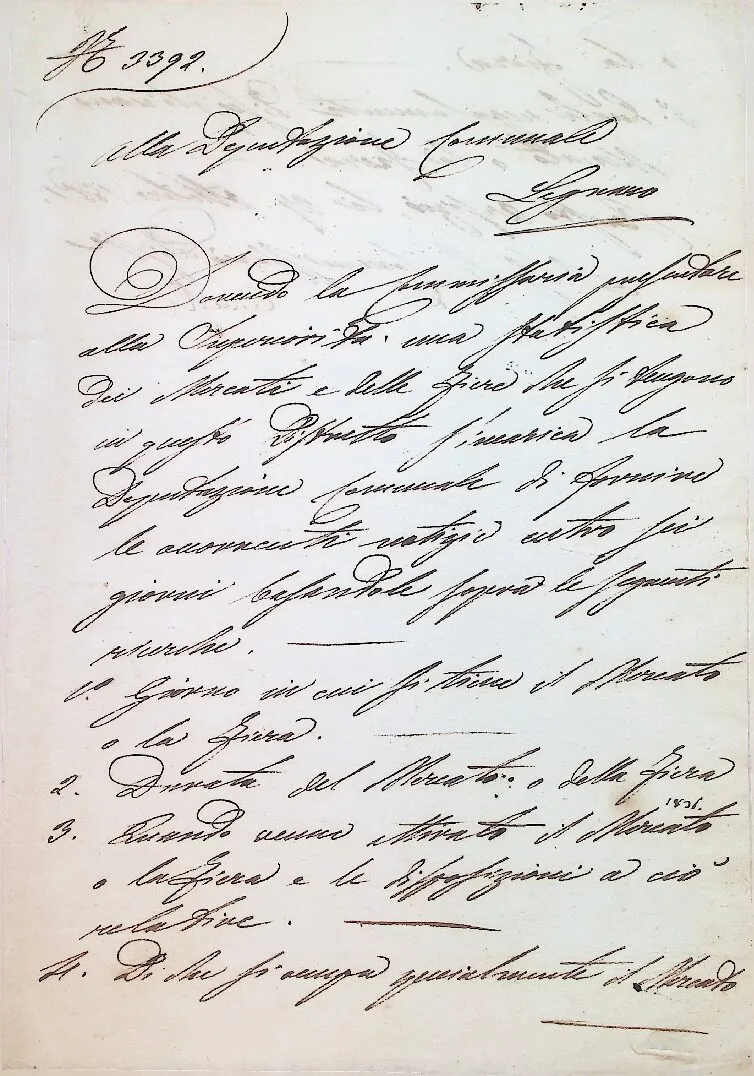 N° 3392.
Alla Deputazione Comunale
Legnano
Dovendo la Commissaria presentare
alla Superiorità una statistica
dei Mercati e delle Fiere che si tengono
in questo Distretto s'incarica la
Deputazione Comunale di fornire
le occorrenti notizie entro sei
giorni basandole sopra le seguenti
ricerche.
1° Giorno in cui si tiene il Mercato
o la Fiera.
2. Durata del Mercato o della Fiera
1836.
3. Quando venne attivato il Mercato
o la Fiera e le disposizioni a ciò
relative.
4. Di che si occupa specialmente il Mercato